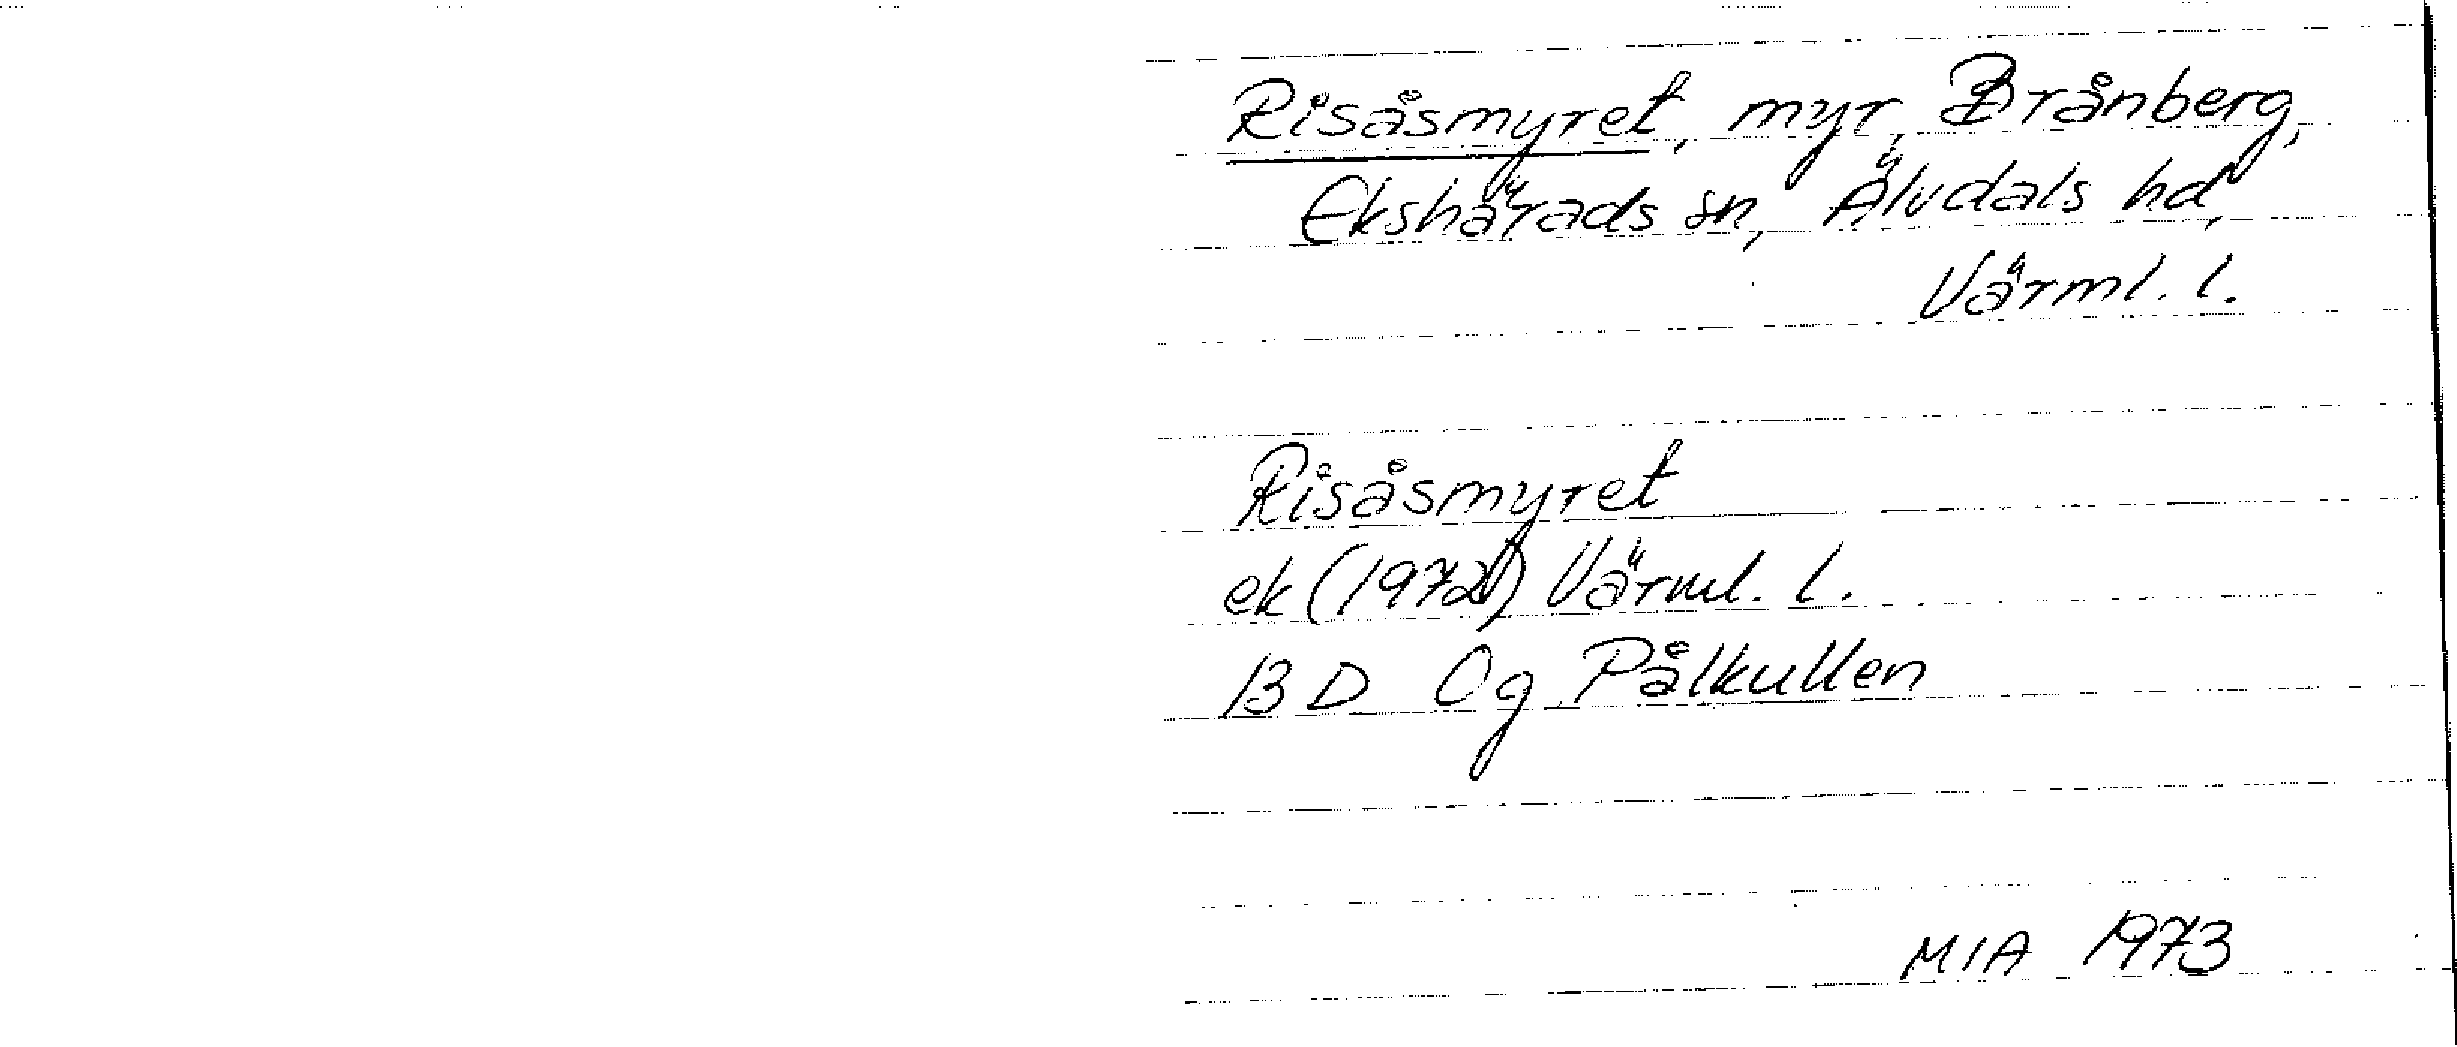 Risåsmyret, myr, Brånberg,
Ekshärads sn, Älvdals hd,
Värml. l.
Risåsmyret
ek (1972) Värml. l.
13 D Og Pålkullen
MIA 1973